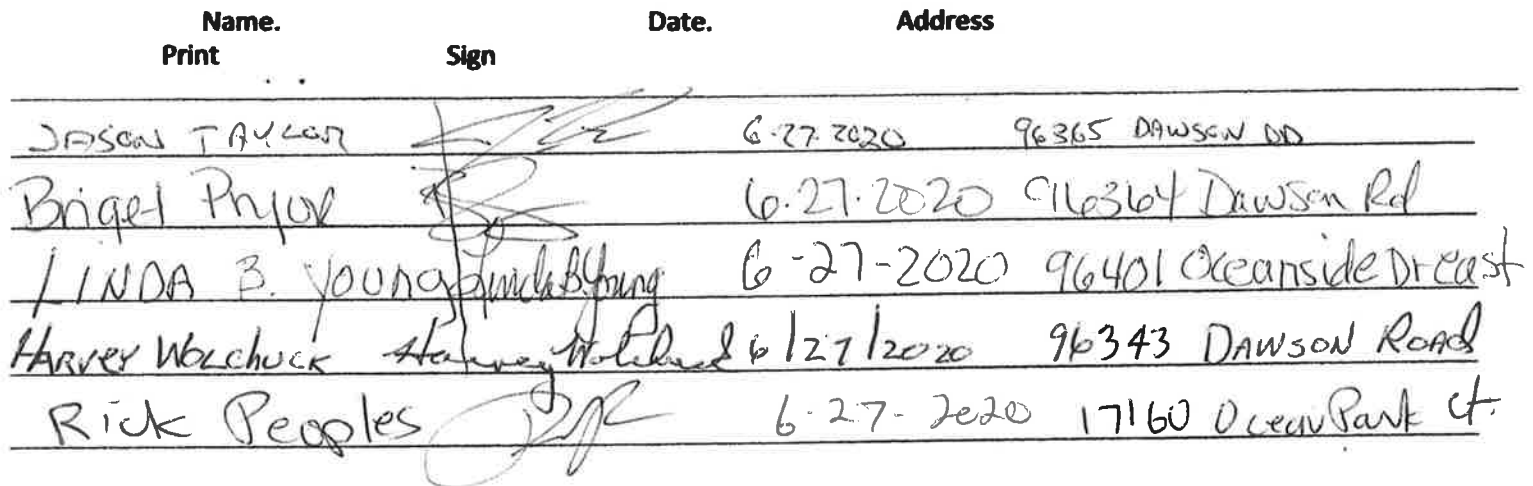 Name. Date. Address
Print Sign
JASON TAYLOR 6-27-2020 96365 DAWSON
Brigel Pryor 6-27-2020 96364 Dawson Rd
LINDA B. Young Linda B Young 6-27-2020 96401 Oceanside Dr East
HARVEY WOLCHUCK Harvey Wolchuck 6/27/2020 96343 DAWSON ROAD
Rick Peoples 6-27-2020 17160 Ocean Park Ct.